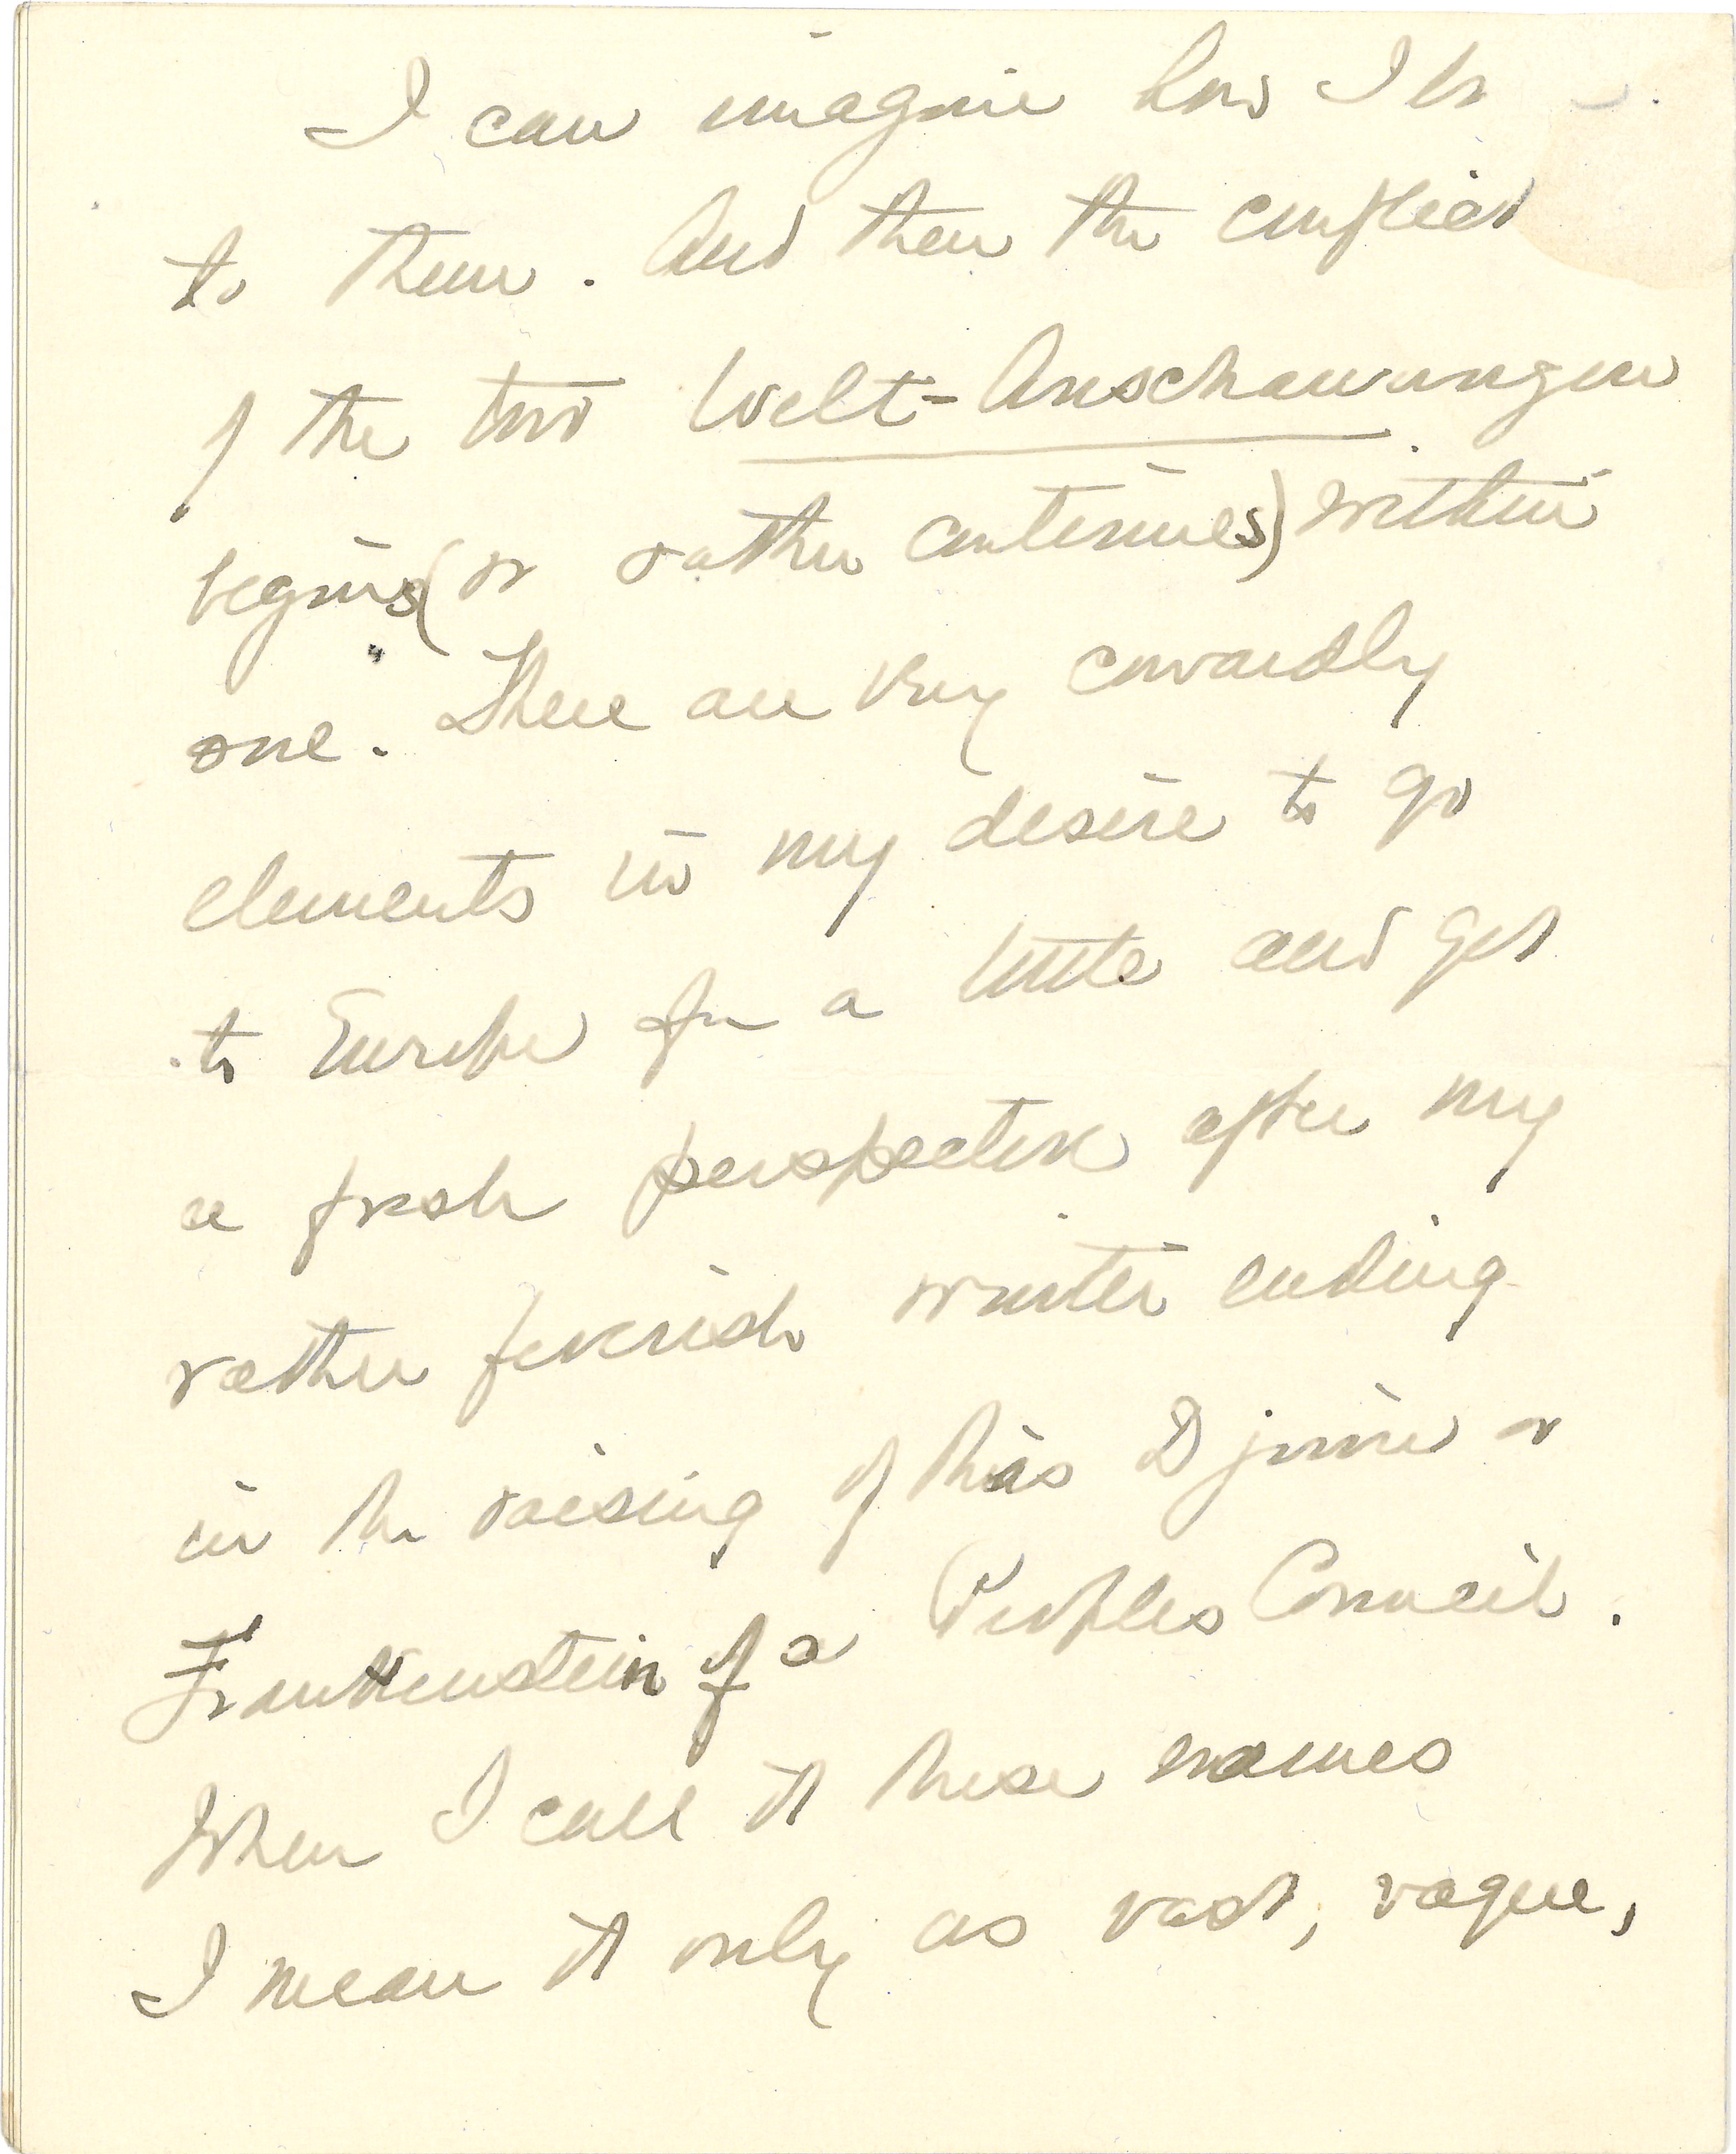 I can imagine how I
to them. And then the conflict
of the two Welt-Anschauungen
begins (or rather continues) within
one. There are very cowardly
elements in my desire to go
to Europe for a little and get
a fresh perspective after my
rather feverish winter ending
in the raising of this Djinn or
Frankenstein of a Peoples Council.
When I call it these names
I mean it only as vast, vague,